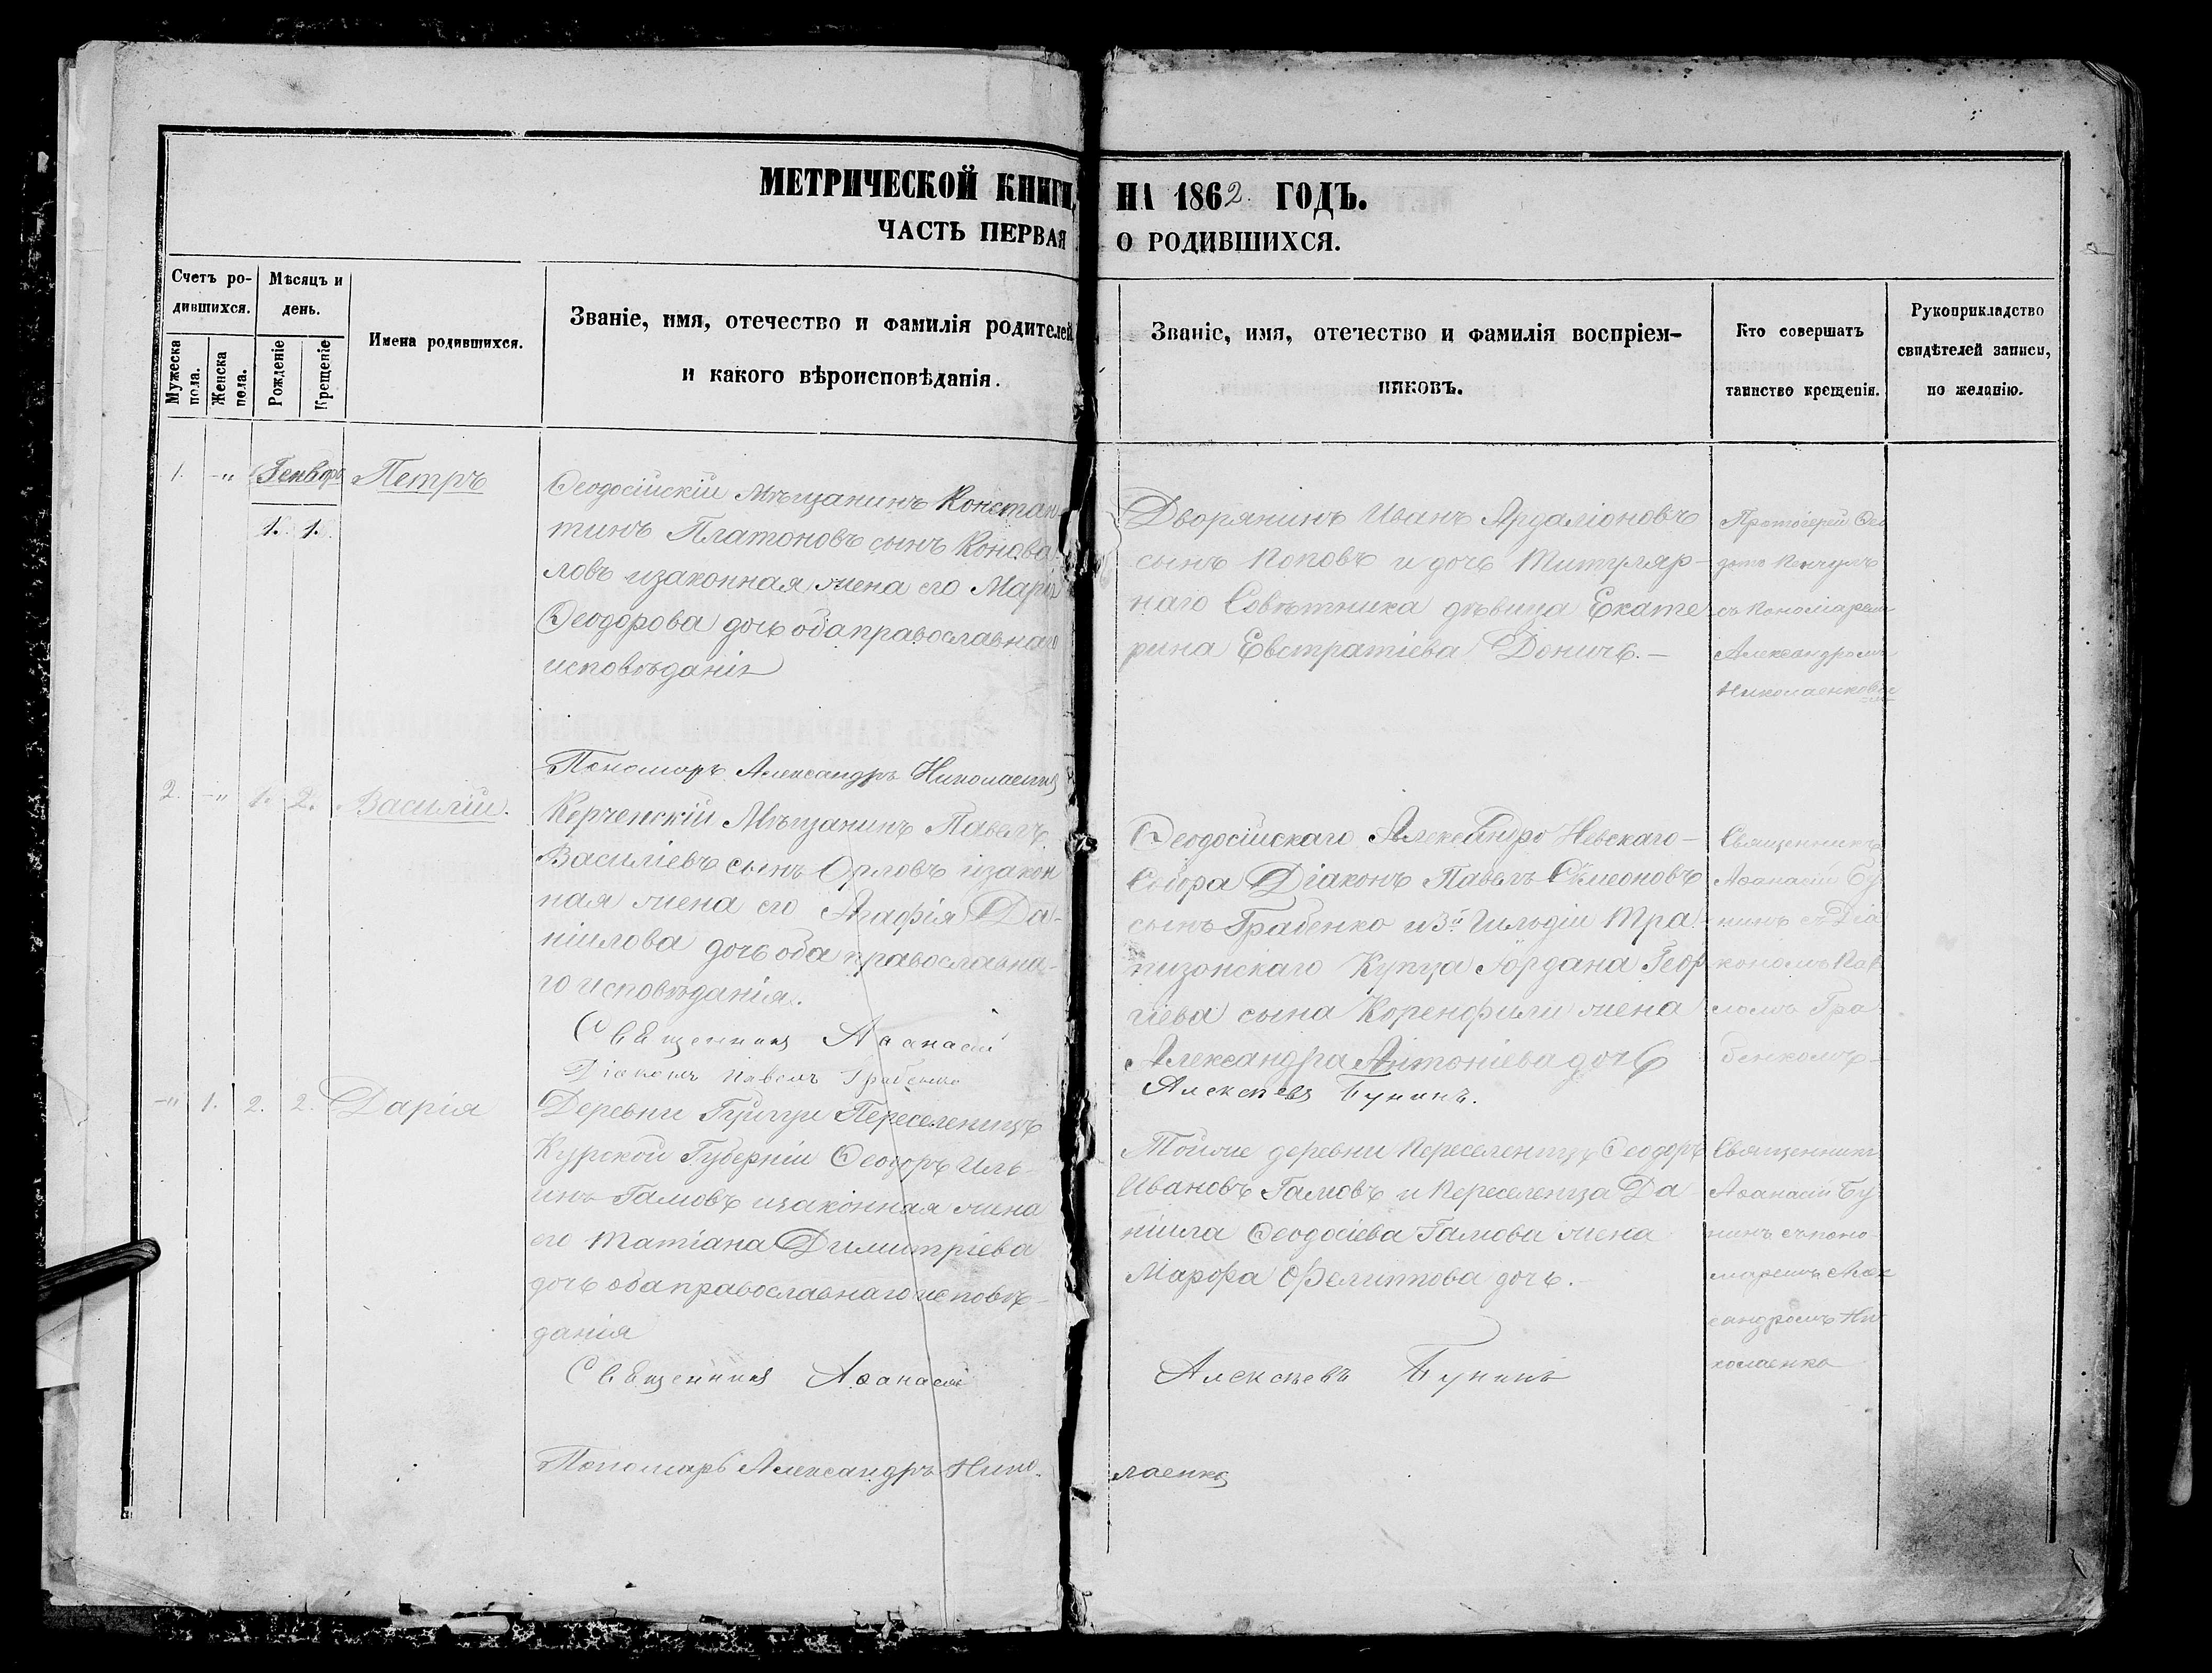 МЕТРИЧЕСКОЙ КНИГИ, НА 1862 ГОДЪ.
ЧАСТЬ ПЕРВАЯ О РОДИВШИХСЯ.
Счетъ ро-
дившихся.
Мужеска пола.
Женска пола.
Мѣсяцъ и
день.
Рожденіе
Крещеніе
Имена родившихся.
Званіе, имя, отечество и фамилія родителей
и какого вѣроисповѣданія.
Званіе, имя, отечество и фамилія воспріем-
никовъ.
Кто совершалъ
таинство крещенія.
Рукоприкладство
свидѣтелей записи,
по желанію.
1. -„ Генварь Петръ
1. 1.
Ѳеодосійскій Мѣщанинъ Констан
тинъ Платоновъ сынъ Конова-
ловъ изаконная жена его Марія
Ѳеодорова дочь оба православнаго
исповѣданія
Дворянинъ Иванъ Ардаліоновъ
сынъ Поповъ и дочь Титуляр-
наго Совѣтника дѣвица Екате
рина Евстратіева Доничь.-
Протоіерей
съ Пономаремъ
Александромъ
Пономарь Александръ Николаенко
2. -„ 1. 2. Василій.
Керченскій Мѣщанинъ Павелъ
Василіевъ сынъ Орловъ изакон
ная жена его Агафія Да-
ніилова дочь оба православна-
го исповѣданія.
Священникъ Аѳанасій
Діаконъ Павелъ Грабенко
Ѳеодосійскаго Александро Невскаго-
Собора Діаконъ Павелъ Симеоновъ
сынъ Грабенко и 3й Гильдіи Тра-
пизонскаго Купца Іордана Геор
гіева сына жена
Александра Антоніева дочь
Алексѣевъ Бунинъ.
Священникъ
Аѳанасій Бу
нинъ съ Діа
кономъ Пав
ломъ Гра
бенкомъ
-„ 1. 2. 2. Дарія
Деревни Переселенецъ
Курской Губерніи Ѳеодоръ Иль-
инъ Гамовъ изаконная жена
его Татіана Димитріева
дочь оба православнаго исповѣ-
данія
Священникъ Аѳанасій
Тойже деревни Переселенецъ Ѳеодоръ
Ивановъ Гамовъ и Переселенца Да
ніила Ѳеодосіева Гамова жена
Марфа Филиппова дочь.
Алексѣевъ Бунинъ
Священникъ
Аѳанасій Бу
нинъ съ поно-
маремъ Алек
сандромъ Ни
колаенко
Пономарь Александръ Нико-
лаенко